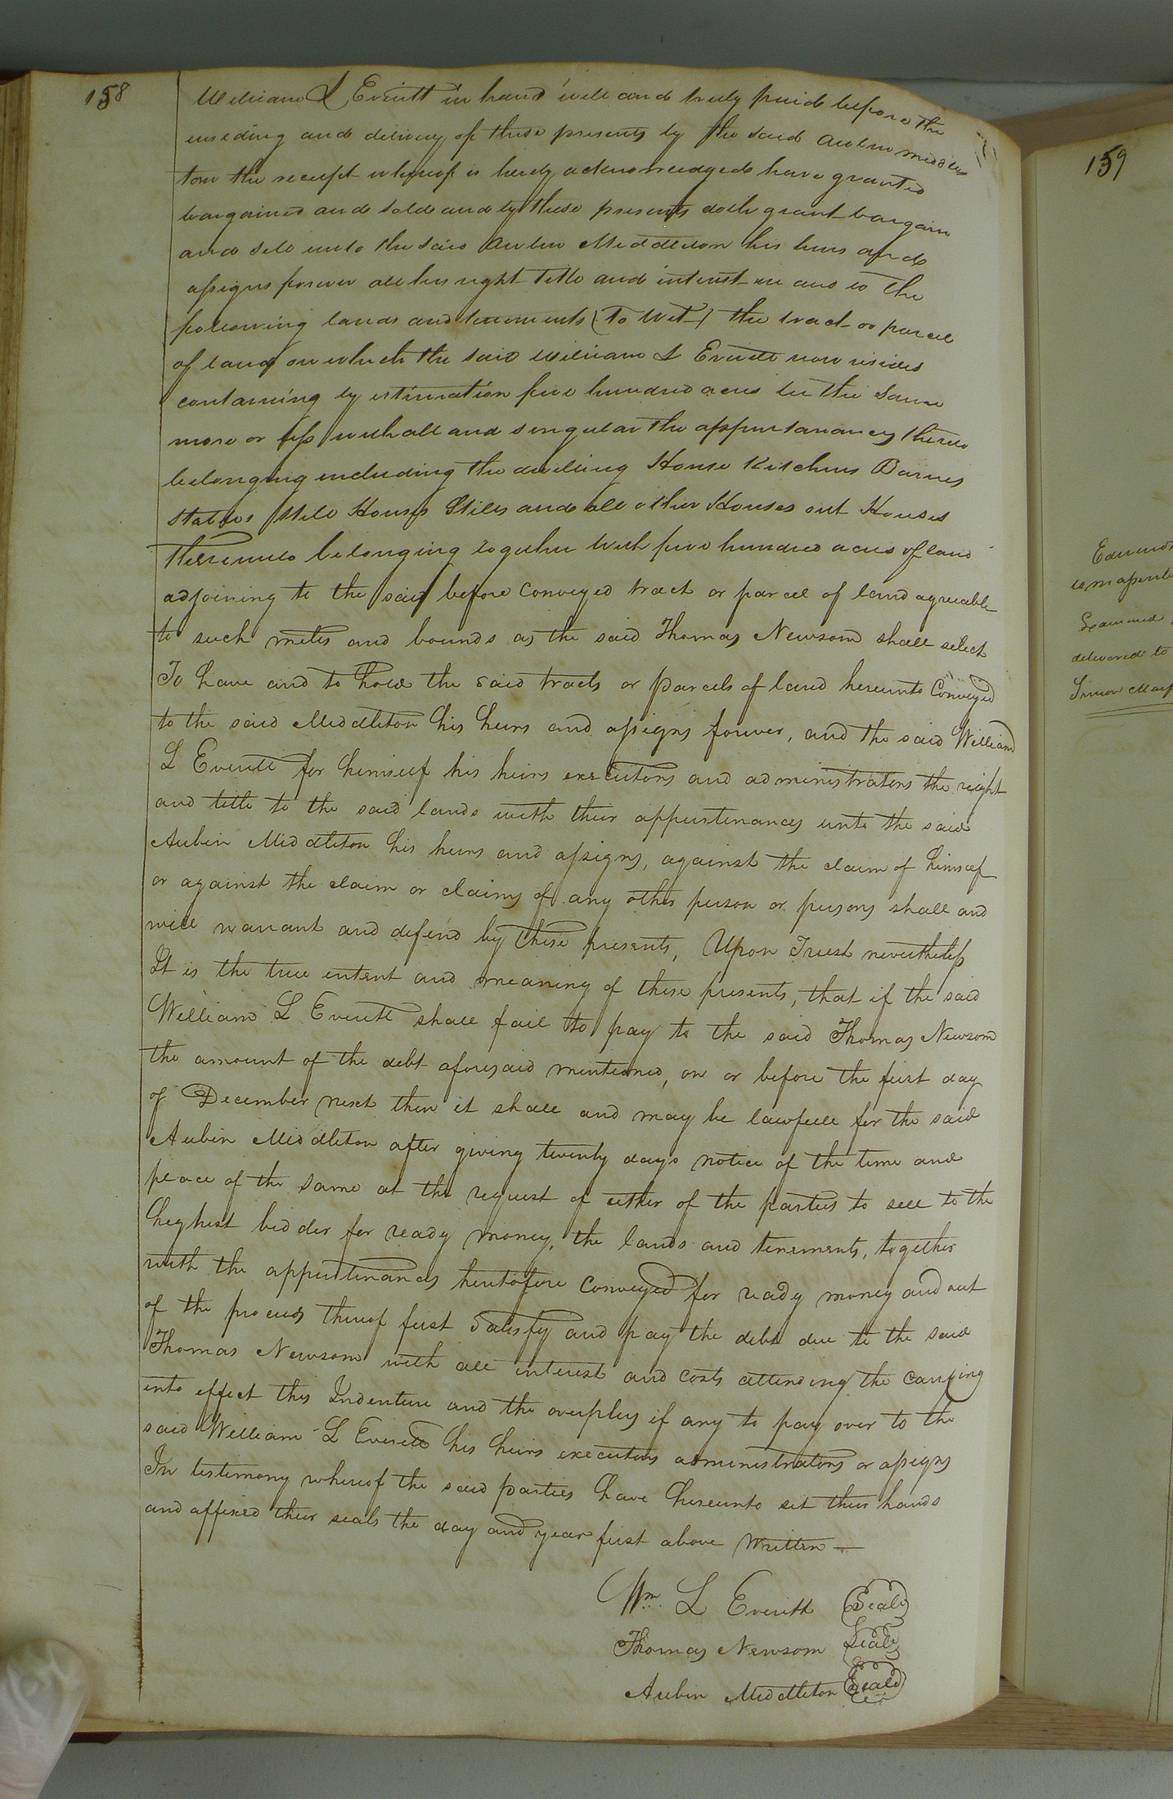 158
William L Everitt in hand well and truly paid before the
ensealing and delivery of these presents by the said Aubin Middle
ton the receipt whereof is hereby acknowledged have granted
bargained and sold and by these presents doth grant bargain
and sell unto the said Aubin Middleton his heirs and
assigns forever all his right title and interest in and to the
following lands and tenements (To Wit) the tract or parcel
of land on which the said William L Everitt now resides
containing by estimation five hundred acres be the same
more or less with all and singular the appurtanancys thereto
belonging including the dwelling House Kitchens Barnes
Stables Still Houses Stills and all other Houses out Houses
thereunto belonging together with five hundred acres of land
adjoining to the said before conveyed tract or parcel of land agreeable
to such metes and bounds as the said Thomas Newsom shall select
To have and to hold the said tracts or parcels of land hereunto Conveyed
to the said Middleton his heirs and assigns forever, and the said William
L Everitt for himself his heirs executors and administrators the right
and title to the said lands with their appurtenances unto the said
Aubin Middleton his heirs and assigns, against the claim of himself
or against the claim or claims of any other person or persons shall and
will warrant and defend by these presents, Upon Trust nevertheless
It is the true entent and meaning of these presents, that if the said
William L Everitt shall fail to pay to the said Thomas Newsom
the amount of the debt aforesaid mentioned, on or before the first day
of December next then it shall and may be lawfull for the said
Aubin Middleton after giving twenty days notice of the time and
place of the same at the request of either of the parties to sell to the
highest bidder for ready money, the lands and tenements, together
with the appurtinances heretofore conveyed for ready money and out
of the proceeds thereof first Satisfy and pay the debt due to the said
Thomas Newsom with all interest and costs attending the carrying
into effect this Indenture and the overplus if any to pay over to the
said William L Everitt his heirs executors administrators or assigns
In testimony whereof the said parties have hereunto set their hands
and affixed their seals the day and year first above Written
Wm. L Everitt Seal
Thomas Newsom Seal
Aubin Middleton Seal
159
Examined
delivered to
Simon